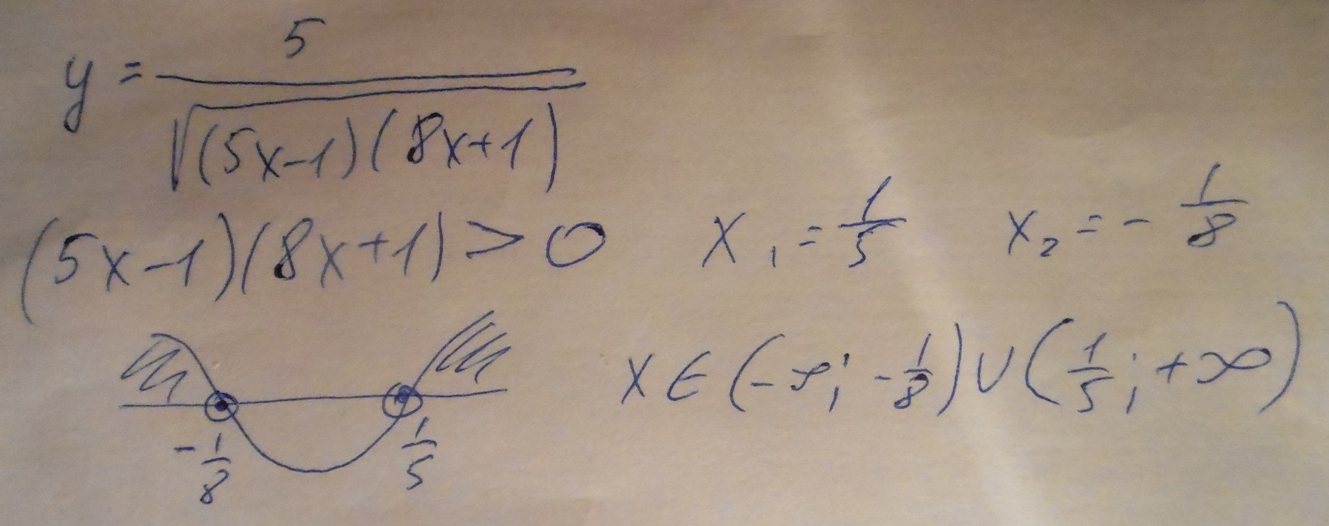 y = 5 / √((5x-1)(8x+1))
(5x-1)(8x+1) > 0 x₁ = 1/5 x₂ = - 1/8
x ∈ (-∞; -1/8) ∪ (1/5; +∞)
-1/8 1/5